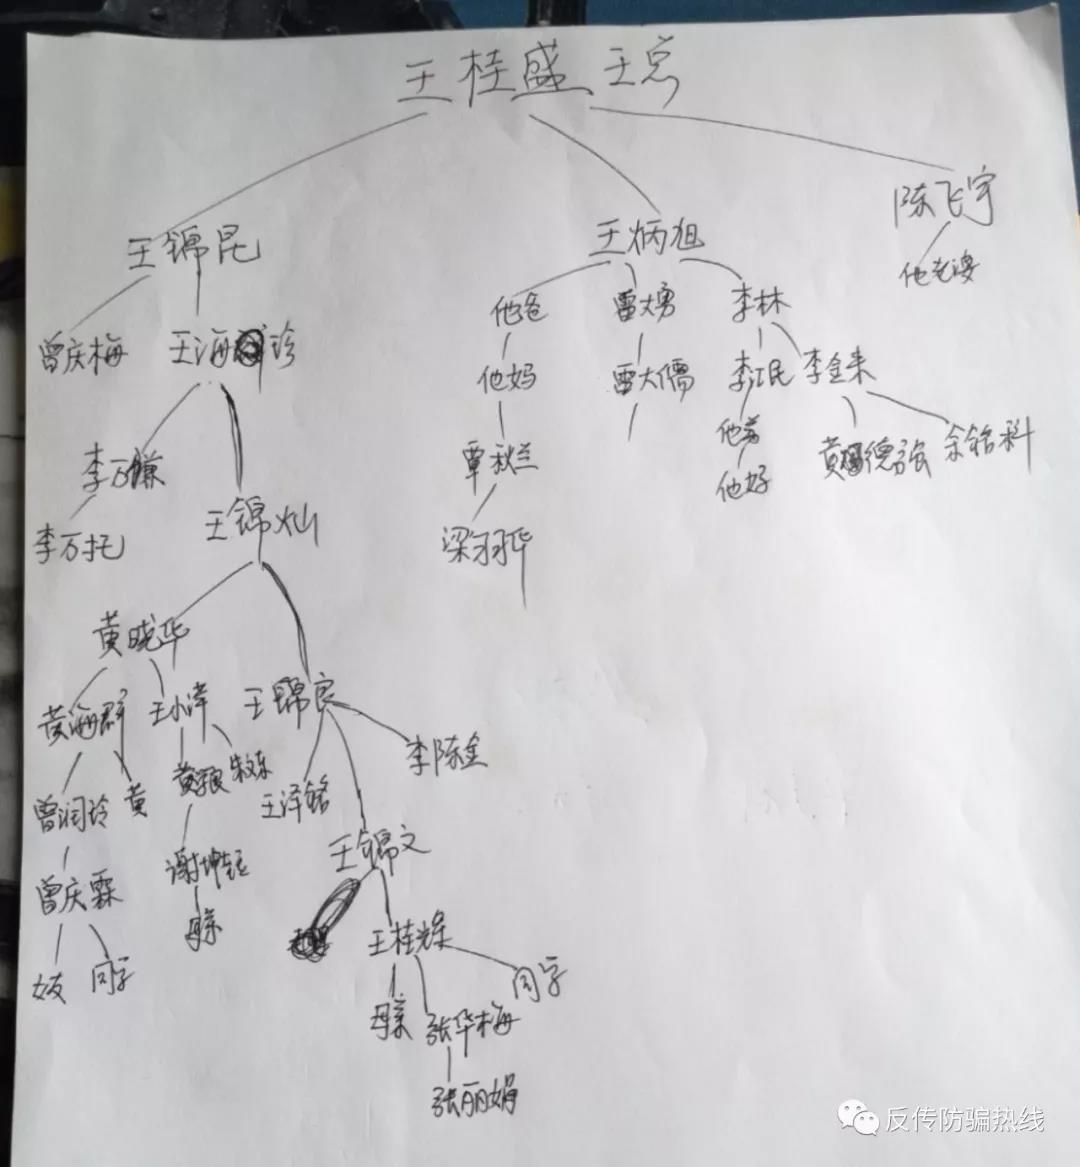 王桂盛 王总
陈飞宇
王锦昆 王炳旭
他老婆
他爸 雷大勇 李林
曾庆梅 王海珍
他妈 雷大儒 李江民 李金来
李万赚 覃秋兰 他爸 黄德强 余铭科
他好
王锦灿
李万托 梁羽华
黄晓华
黄海群 王小泽 王锦良
李陈金
黄 朱东
曾润玲 王泽铭
王锦文
谢坤钰
曾庆霖
母亲 王桂燦
女友 同学 同学
母亲 张华梅
张丽娟
反传防骗热线